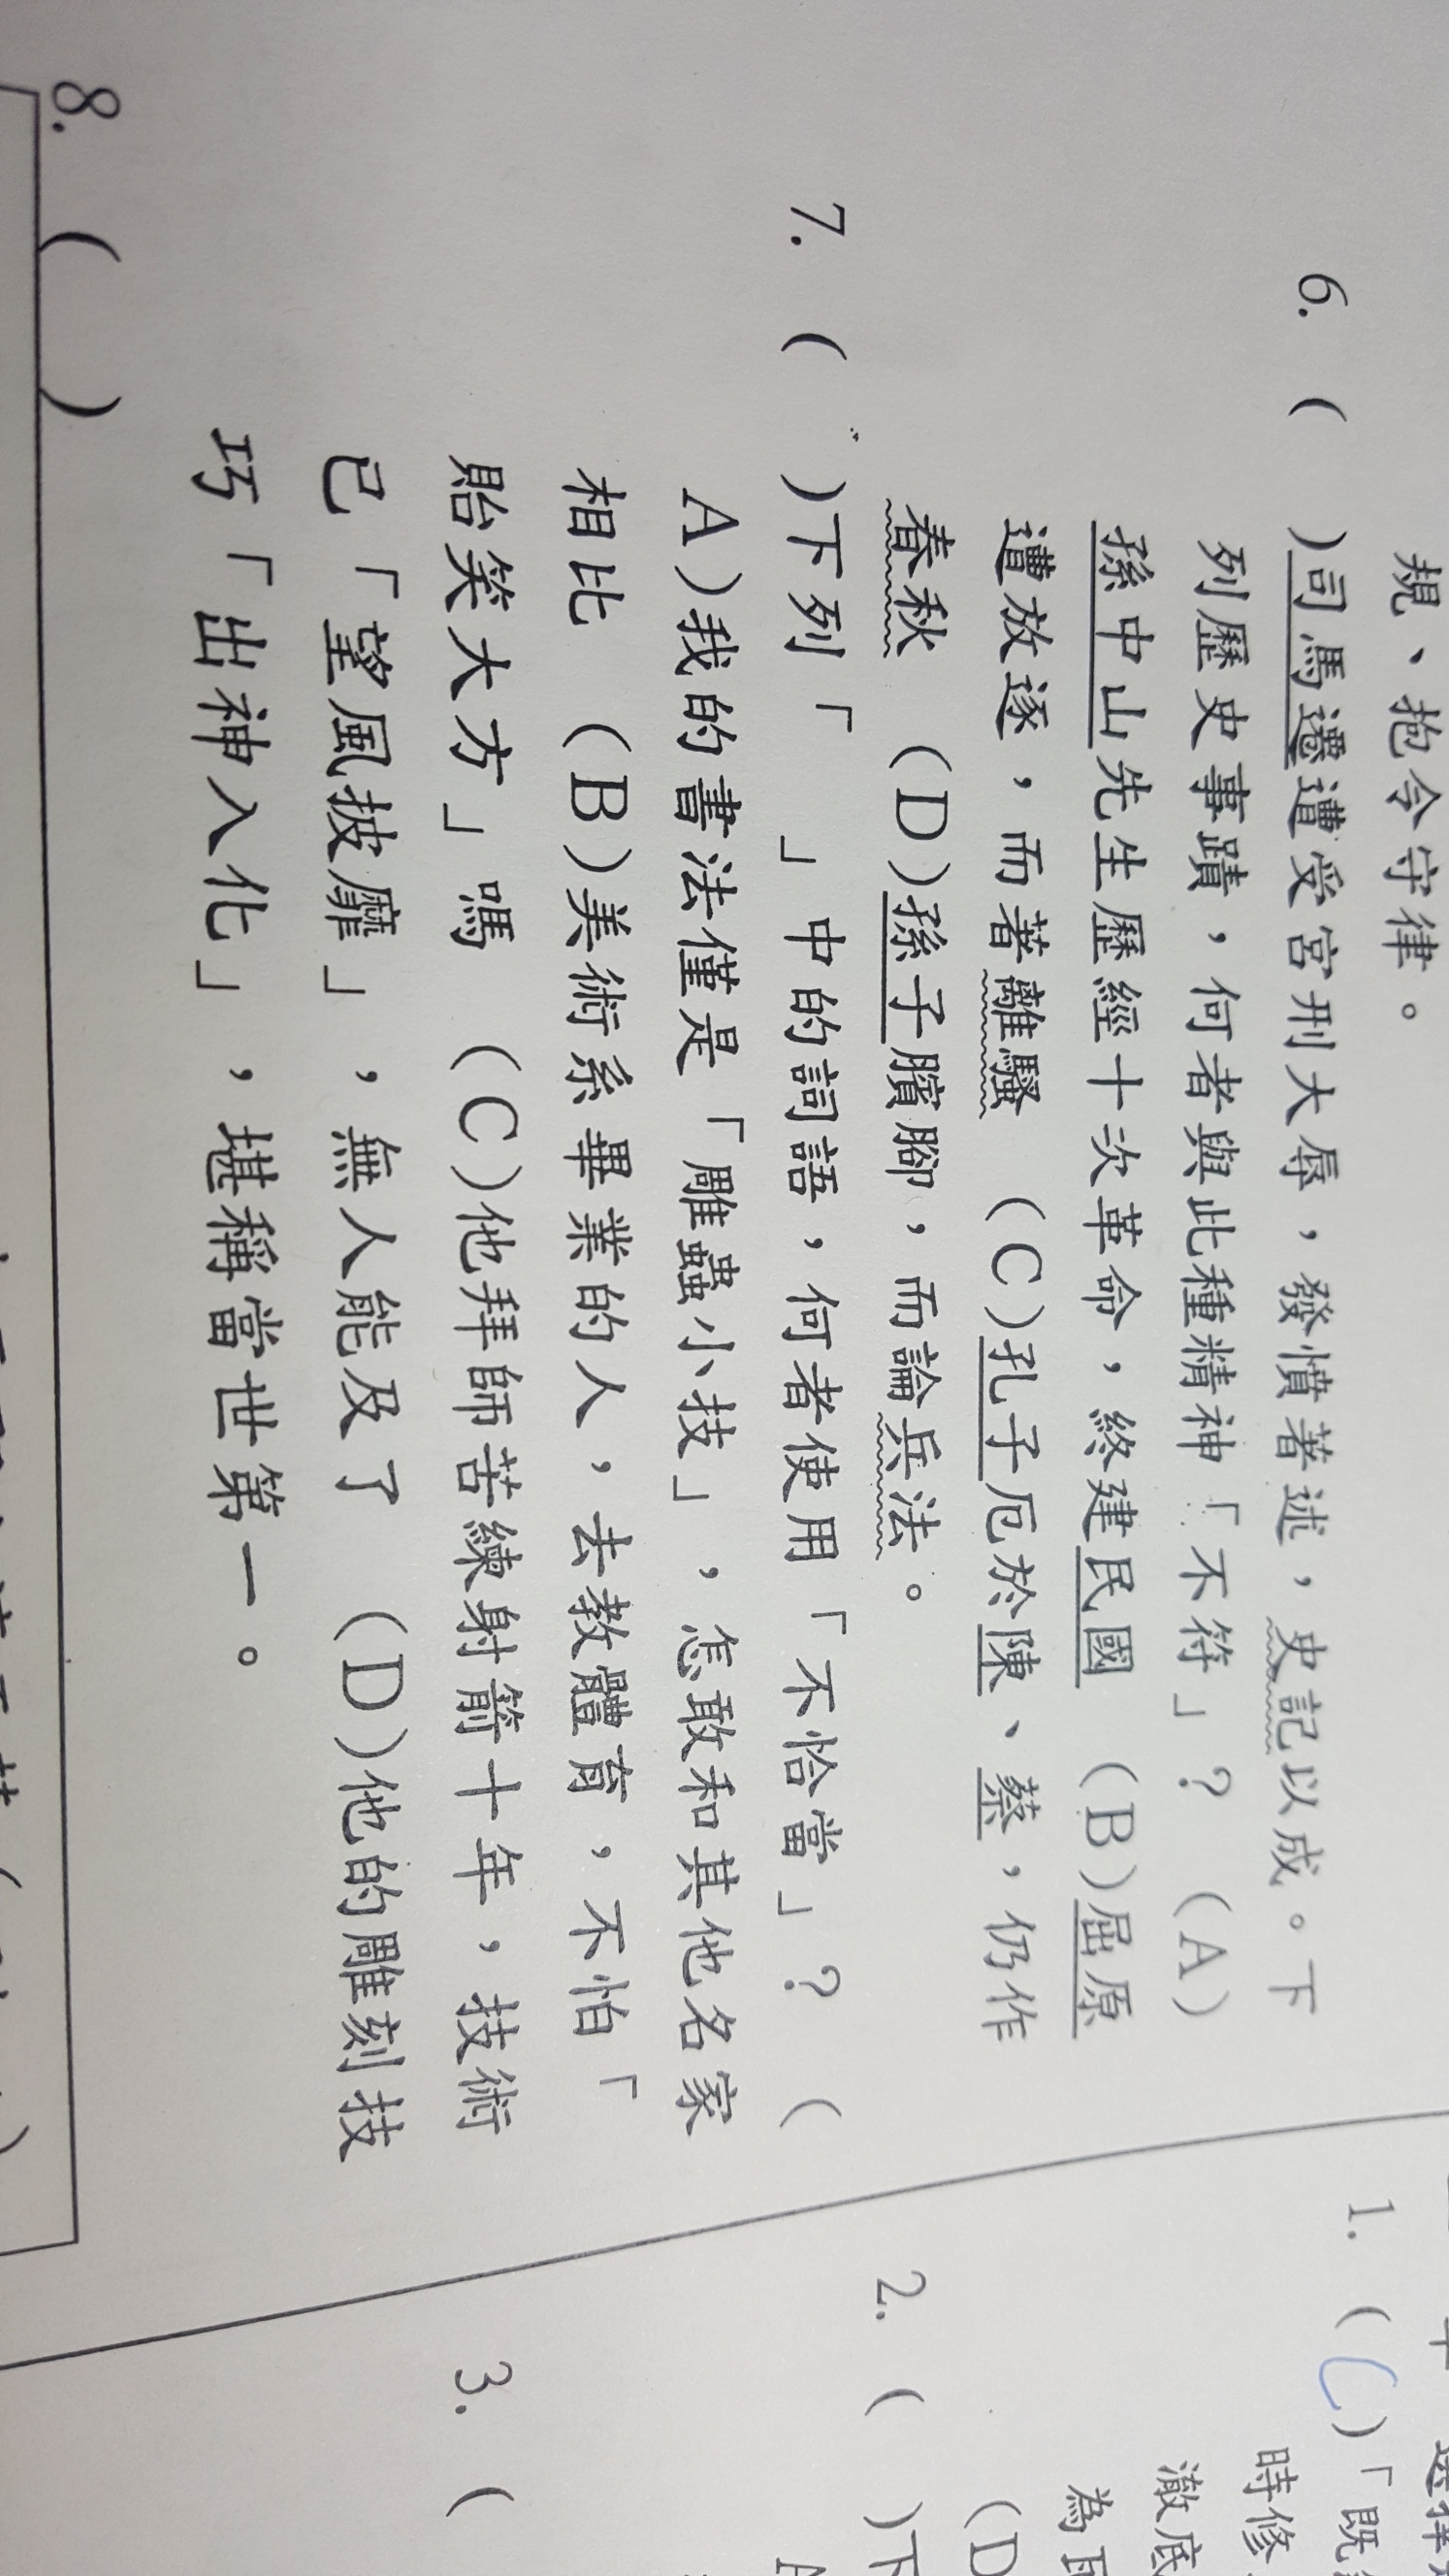 規、抱令守律。
6. ( )司馬遷遭受宮刑大辱，發憤著述，史記以成。下
列歷史事蹟，何者與此種精神「不符」？ (A)
孫中山先生歷經十次革命，終建民國 (B)屈原
遭放逐，而著離騷 (C)孔子厄於陳、蔡，仍作
春秋 (D)孫子臏腳，而論兵法。
7. ( )下列「 」中的詞語，何者使用「不恰當」？ (
A)我的書法僅是「雕蟲小技」，怎敢和其他名家
相比 (B)美術系畢業的人，去教體育，不怕「
貽笑大方」嗎 (C)他拜師苦練射箭十年，技術
已「望風披靡」，無人能及了 (D)他的雕刻技
巧「出神入化」，堪稱當世第一。
8. ( )
1. (C)「既
時修
澈底
為
(D
2. ( )下
A
3. (